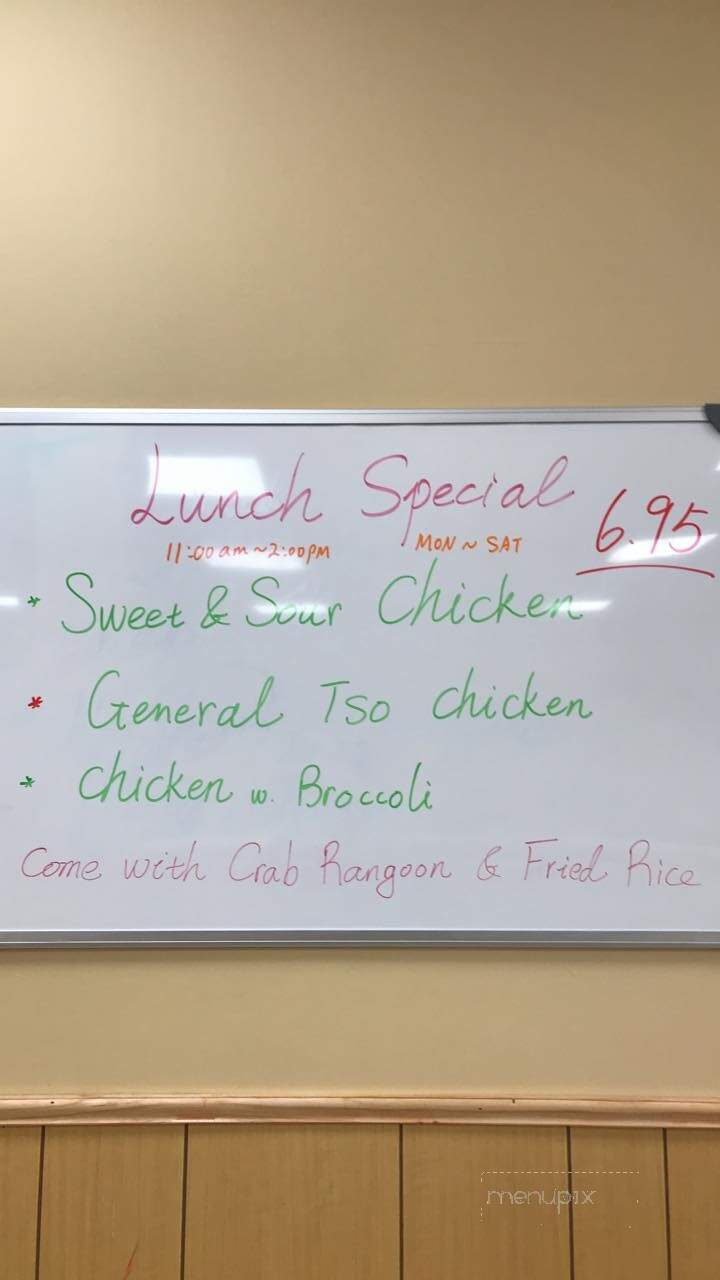 Lunch Special
6.95
11:00 am ~ 2:00 PM MON ~ SAT
* Sweet & Sour Chicken
* General Tso chicken
* Chicken w. Broccoli
Come with Crab Rangoon & Fried Rice
menupix